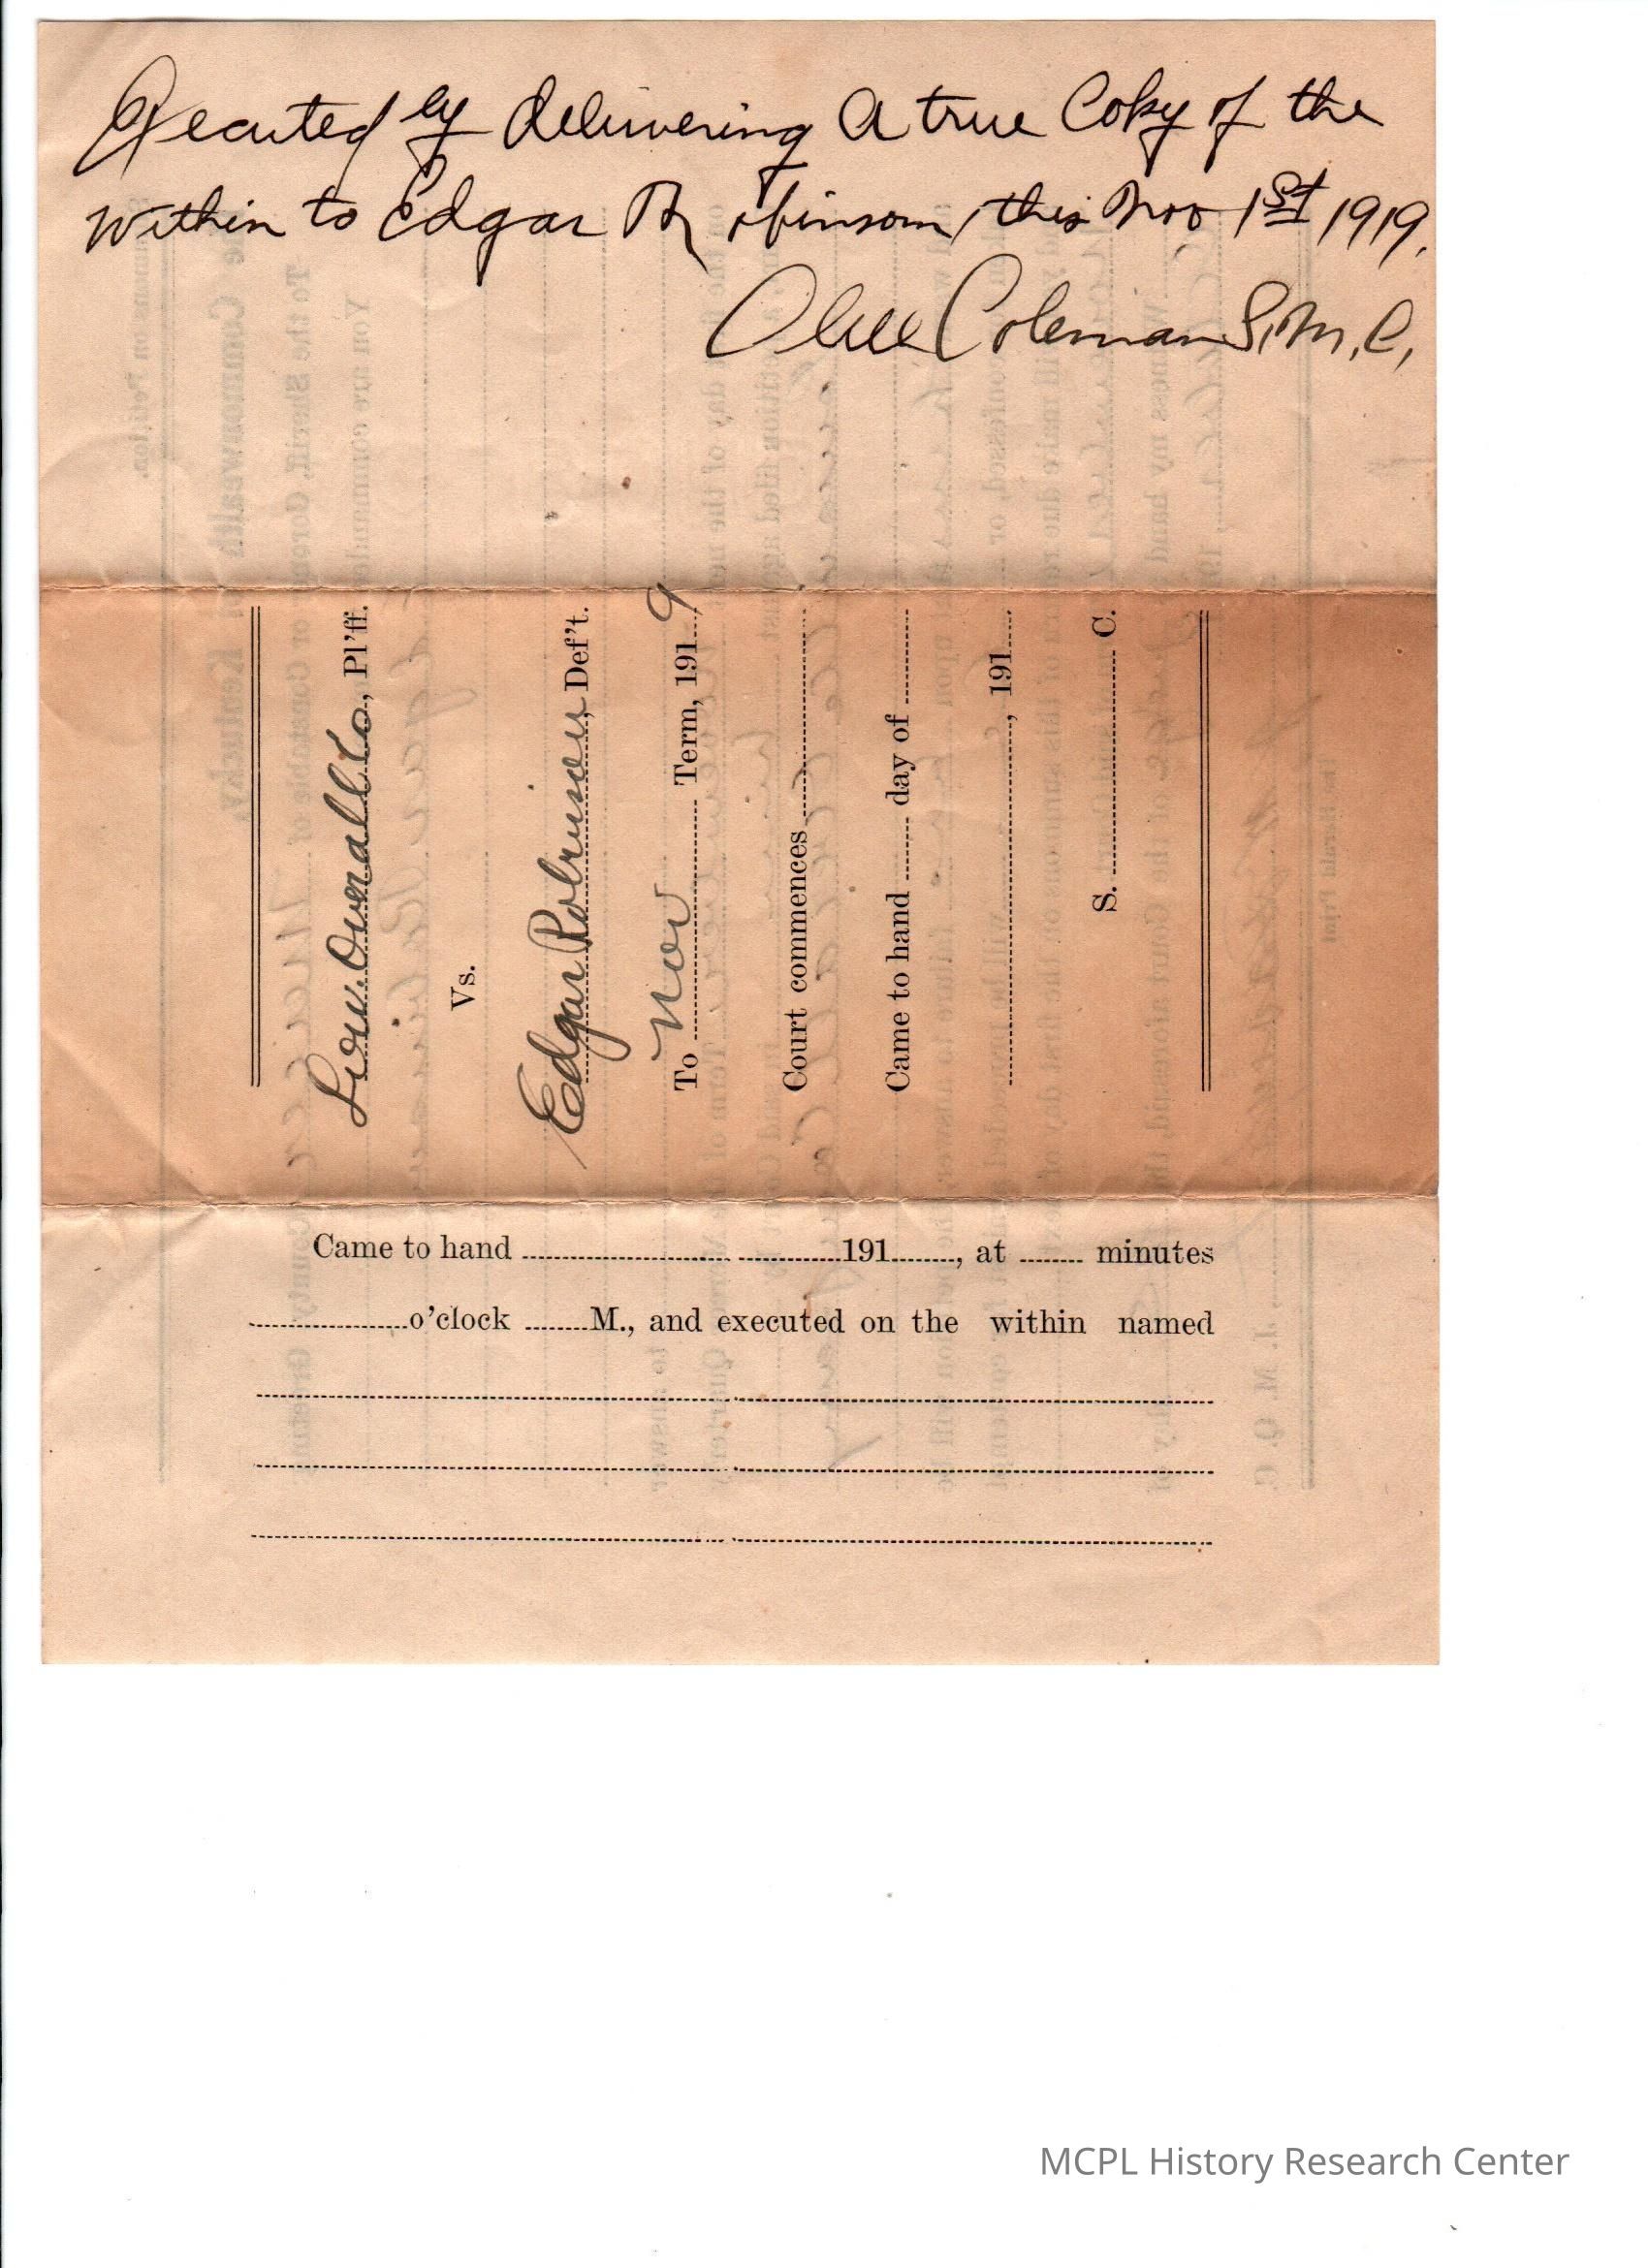 Executed by delivering A true Copy of the
within to Edgar Robinson, this Nov 1st 1919.
Coleman S.M.C.
Overall Co., Pl'ff.
Vs.
Edgar Robinson, Def't.
To Nov Term, 1919
Court commences
Came to hand day of
, 191
S. C.
Came to hand 191, at minutes
o'clock M., and executed on the within named
MCPL History Research Center